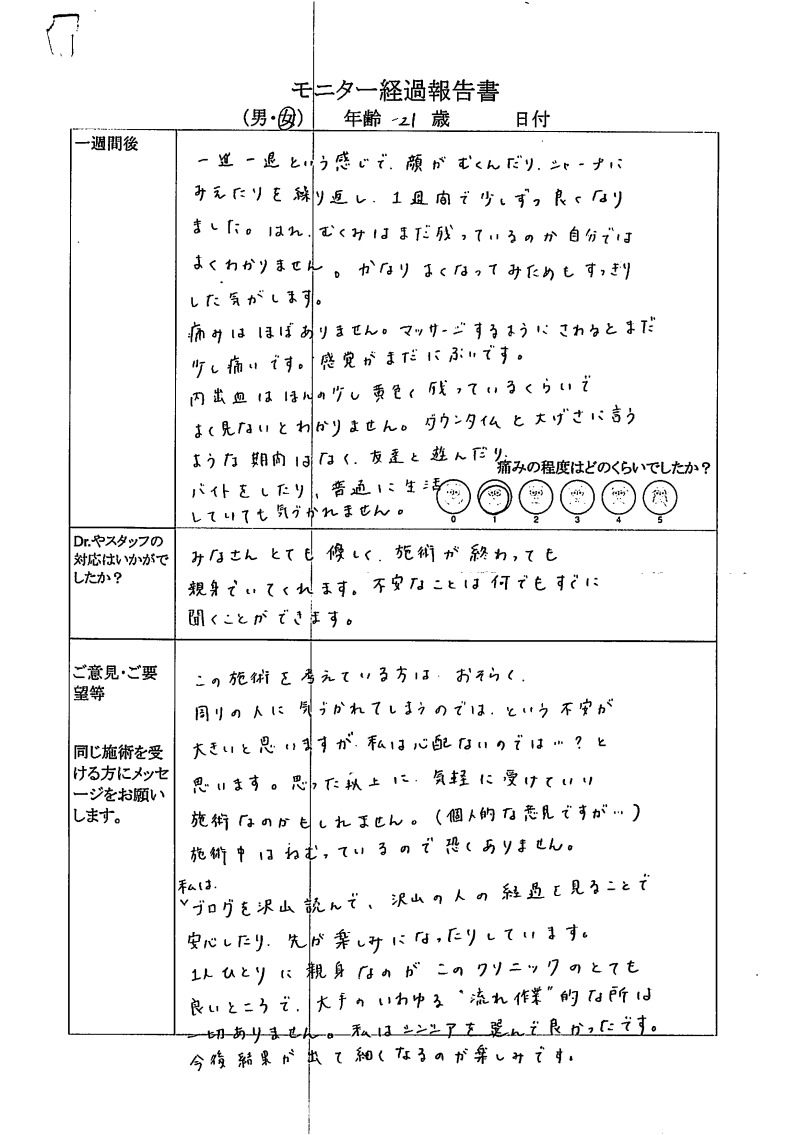 モニター経過報告書
(男・女) 年齢 21 歳 日付
一週間後
一進一退という感じで、顔がむくんだり、シャープに
みえたりを繰り返し、1週間で少しずつ良くなり
ました。はれ、むくみはまだ残っているのか自分では
よくわかりません。かなりよくなってみためもすっきり
した気がします。
痛みはほぼありません。マッサージするようにさわるとまだ
少し痛いです。感覚がまだにぶいです。
内出血はほんの少し黄色く残っているくらいで
よく見ないとわかりません。ダウンタイムと大げさに言う
ような期間はなく、友達と遊んだり、
バイトをしたり、普通に生活
していても気づかれません。
痛みの程度はどのくらいでしたか?
0 1 2 3 4 5
Dr.やスタッフの
対応はいかがで
したか?
みなさんとても優しく、施術が終わっても
親身でいてくれます。不安なことは何でもすぐに
聞くことができます。
ご意見・ご要
望等
同じ施術を受
ける方にメッセ
ージをお願い
します。
この施術を考えている方は、おそらく、
周りの人に気づかれてしまうのでは、という不安が
大きいと思いますが、私は心配ないのでは…?と
思います。思った以上に、気軽に受けていい
施術なのかもしれません。(個人的な意見ですが…)
施術中はねむっているので恐くありません。
私は、
ブログを沢山読んで、沢山の人の経過を見ることで
安心したり、先が楽しみになったりしています。
1人ひとりに親身なのがこのクリニックのとても
良いところで、大手のいわゆる"流れ作業"的な所は
一切ありません。私はシンシアを選んで良かったです。
今後結果が出て細くなるのが楽しみです。